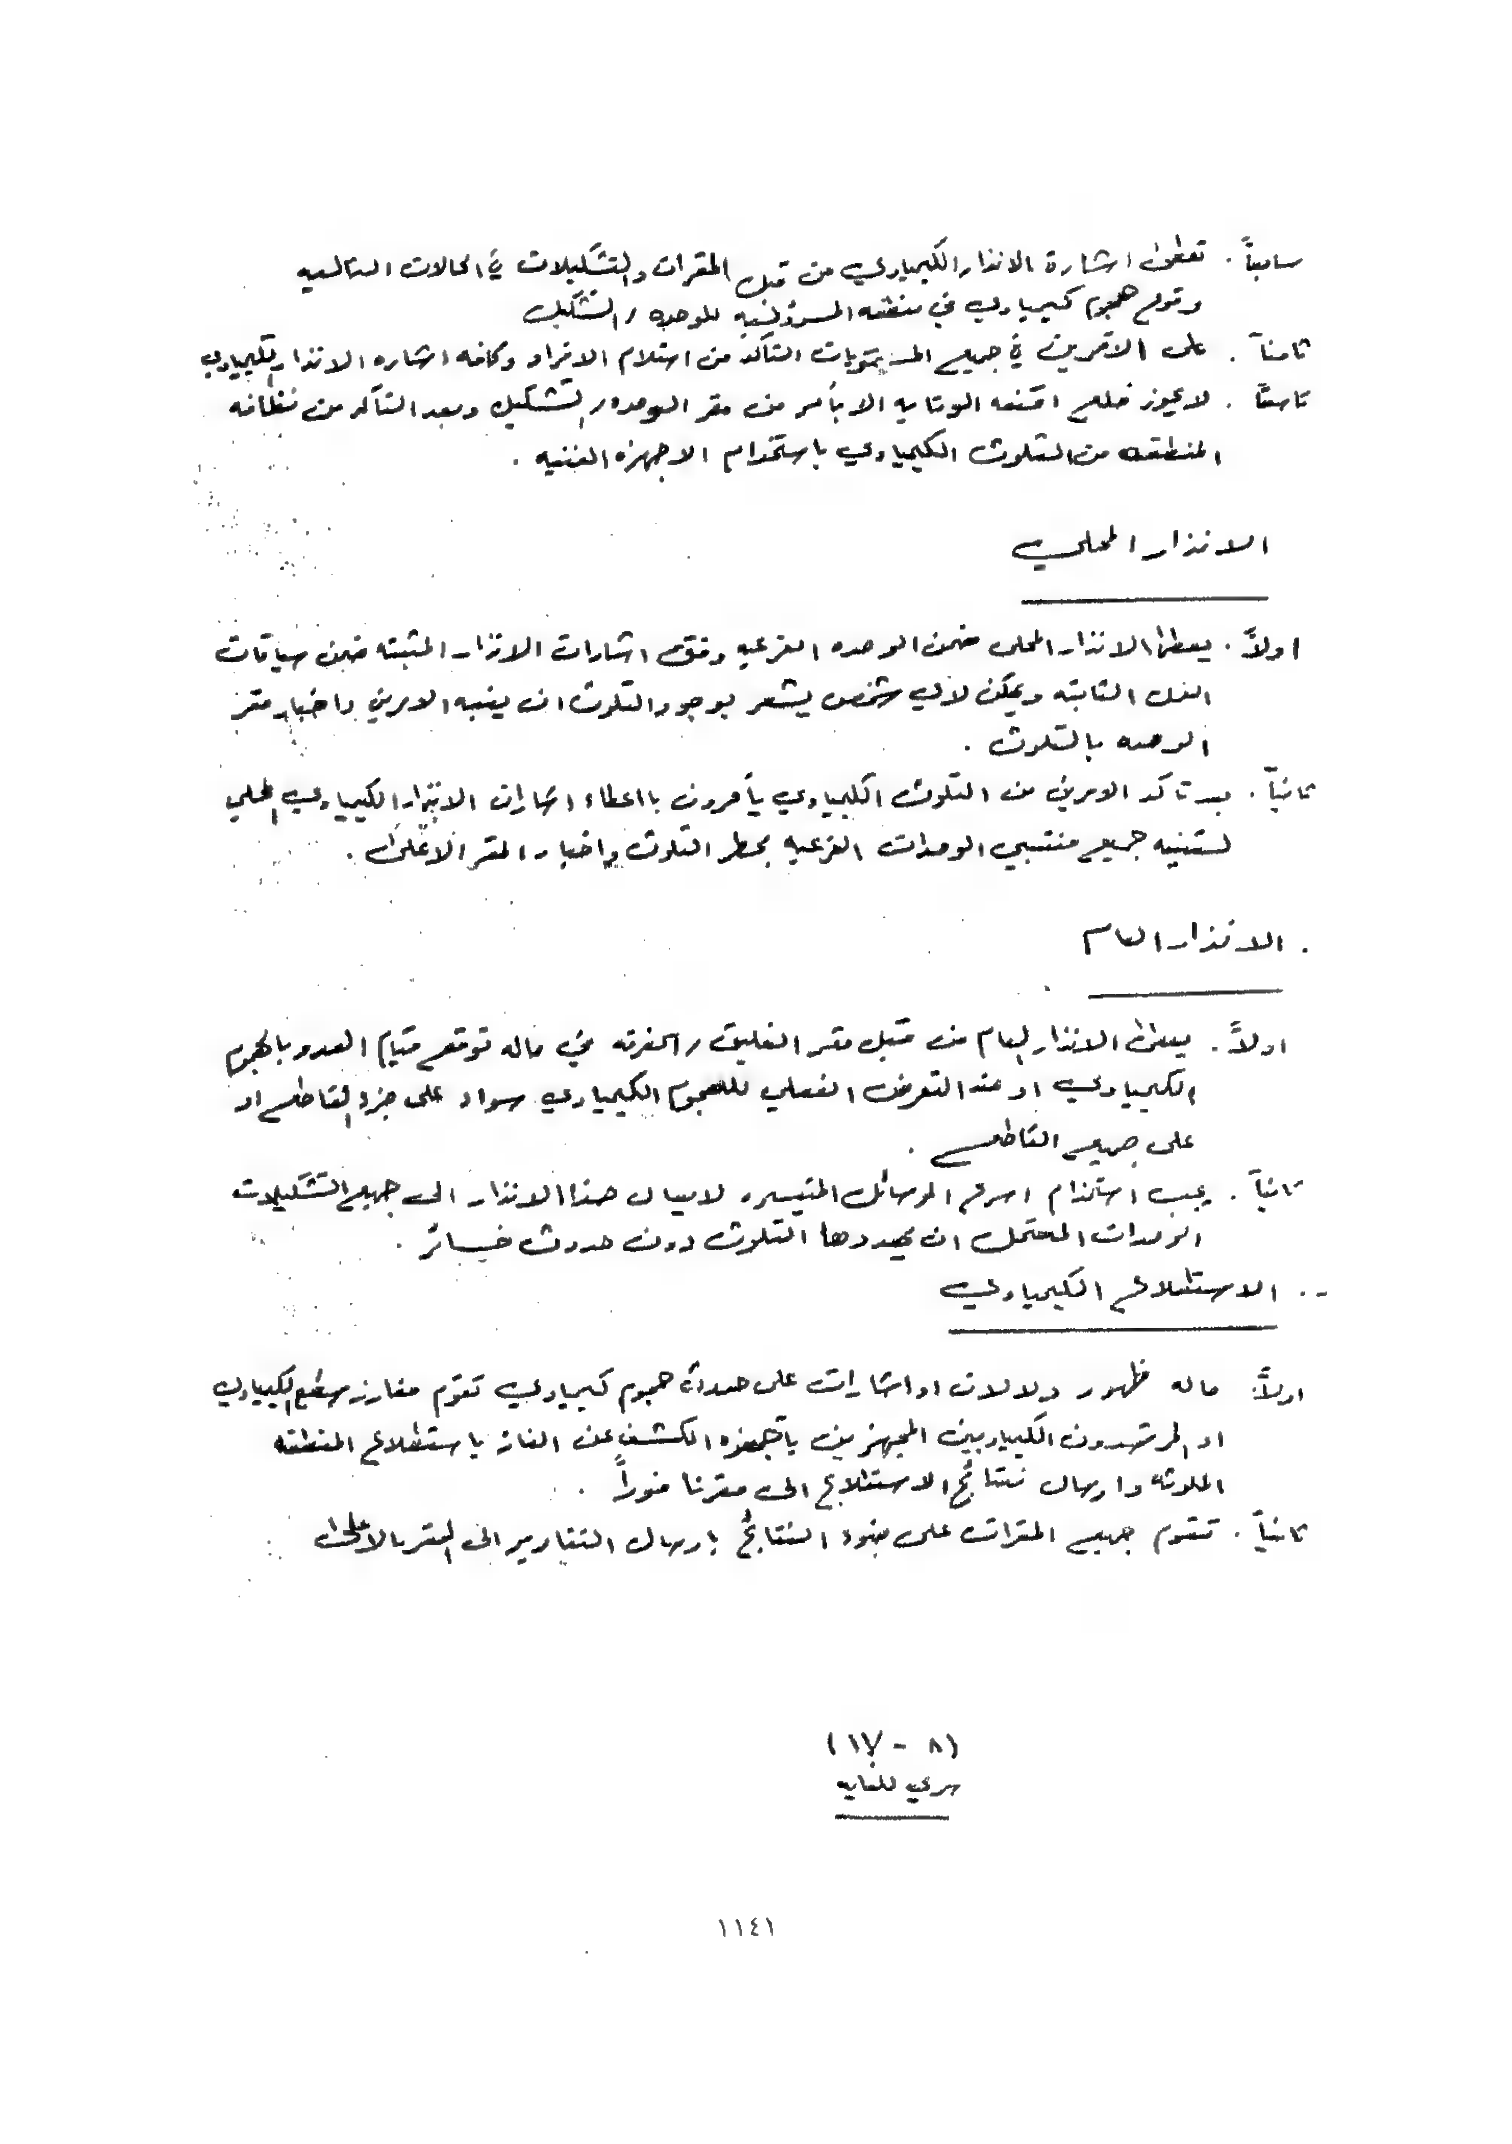 سابعاً . تعطى اشارة الانذار الكيمياوي من قبل المقرات والتشكيلات في الحالات التاليه
وقوع هجوم كيمياوي في منطقه المسؤوليه للوحده / التشكيل
ثامناً . على الآمرين في جميع المستويات التأكد من استلام الافراد وكافه اشاره الانذار الكيمياوي
تاسعاً . لا يجوز خلع اقنعه الوقايه الا بأمر من مقر الوحده / التشكيل وبعد التأكد من نظافه
المنطقه من التلوث الكيمياوي باستخدام الاجهزه الفنيه .
الانذار المحلي
اولاً . يعطى الانذار المحلى ضمن الوحده الفرعيه وفق اشارات الانذار المثبته ضمن سياقات
العمل الثابته ويمكن لاي شخص يشعر بوجود التلوث ان ينبه الامرين واخبار مقر
الوحده بالتلوث .
ثانياً . بعد تاكد الامرين من التلوث الكيمياوي يأمرون بااعطاء اشارات الانذار الكيمياوي المحلي
لتنبيه جميع منتسبي الوحدات الفرعيه بخطر التلوث واخبار المقر الاعلى .
. الانذار العام
اولاً . يعطى الانذار العام من قبل مقر الفيلق / الفرقه في حاله توقع قيام العدو بالهجوم
الكيمياوي او عند التعرض الفعلي للهجوم الكيمياوي سواء على جزء القاطع او
على جميع القاطع .
ثانياً . يجب استخدام اسرع الوسائل المتيسره لايصال هذا الانذار الى جميع التشكيلات
الوحدات المحتمل ان يهددها التلوث دون حدوث خسائر .
.. الاستطلاع الكيمياوي
اولاً . حاله ظهور دلالات او اشارات على حدوث هجوم كيمياوي تقوم مفارز الكيمياوي
او المرشدون الكيمياويين المجهزين باجهزه الكشف عن الغاز باستطلاع المنطقه
الملوثه وارسال نتائج الاستطلاع الى مقرنا فوراً .
ثانياً . تقوم جميع المقرات على ضوء النتائج بارسال التقارير الى المقر الاعلى
(٨ - ١٧)
سري للغايه
١١٤١